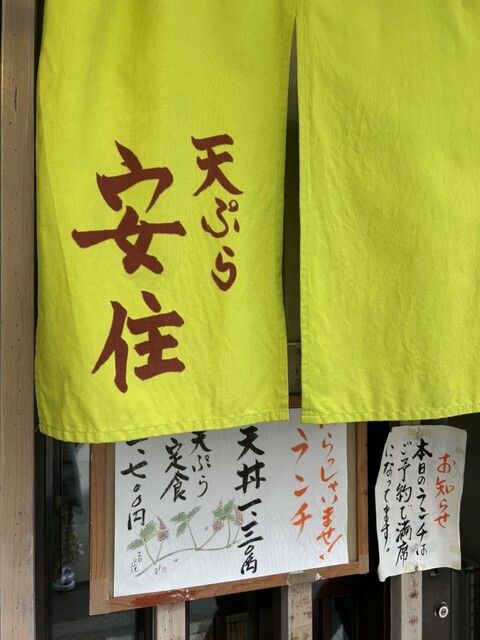 天ぷら
安住
らっしゃいませ!
ランチ
天丼一、三〇〇円
天ぷら
定食
一、七〇〇円
お知らせ
本日のランチは
ご予約で満席
になってます!